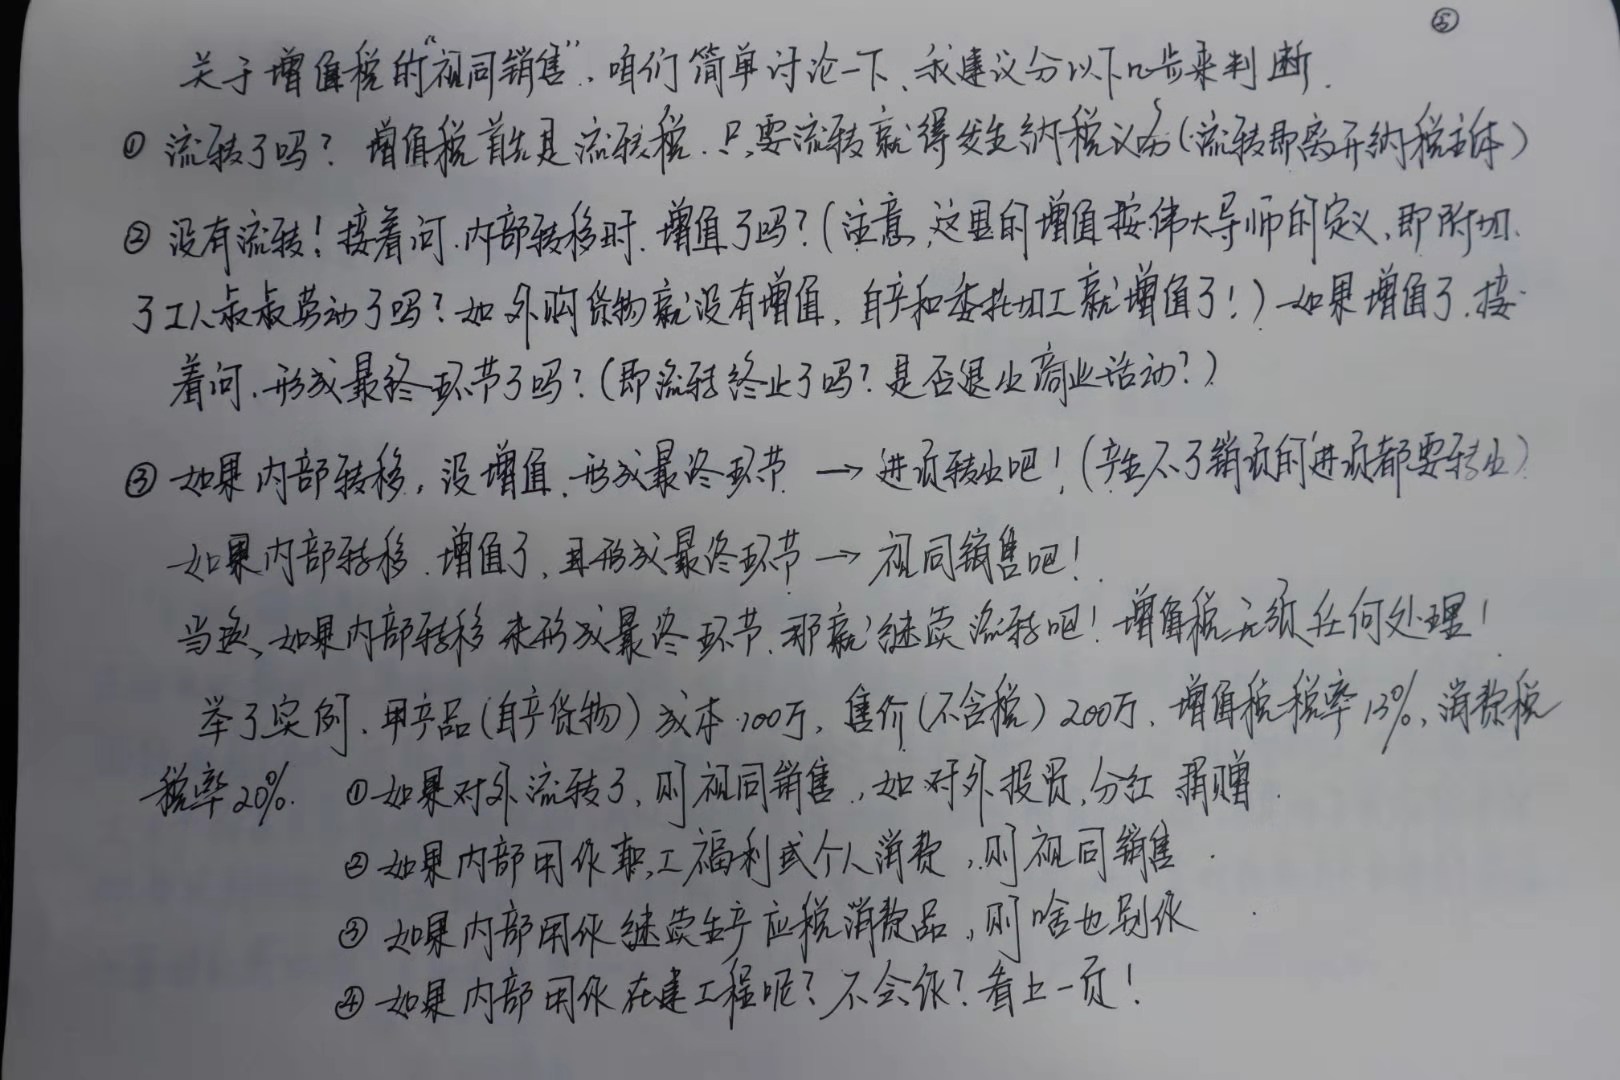 ⑤
关于增值税的"视同销售"、咱们简单讨论一下、我建议分以下几步来判断.
① 流转了吗？增值税首先是流转税.只要流转就得发生纳税义务(流转即离开纳税主体)
② 没有流转！接着问.内部转移时.增值了吗？(注意,这里的增值按伟大导师的定义,即附加.
了工人叔叔劳动了吗？如外购货物就没有增值,自产和委托加工就增值了！)如果增值了.接
着问.形成最终环节了吗？(即流转终止了吗？是否退出商业活动？)
③ 如果内部转移,没增值.形成最终环节 → 进项转出吧！(产生不了销项的进项都要转出)
如果内部转移.增值了、且形成最终环节 → 视同销售吧！
当然、如果内部转移未形成最终环节.那就继续流转吧！增值税无须任何处理！
举了实例.甲产品(自产货物)成本100万,售价(不含税)200万.增值税税率13%,消费税
税率20%. ①如果对外流转了,则视同销售,如对外投资,分红 捐赠.
②如果内部用作职工福利或个人消费,则视同销售.
③如果内部用作继续生产应税消费品,则啥也别作.
④如果内部用作在建工程呢？不会作？看上一页！